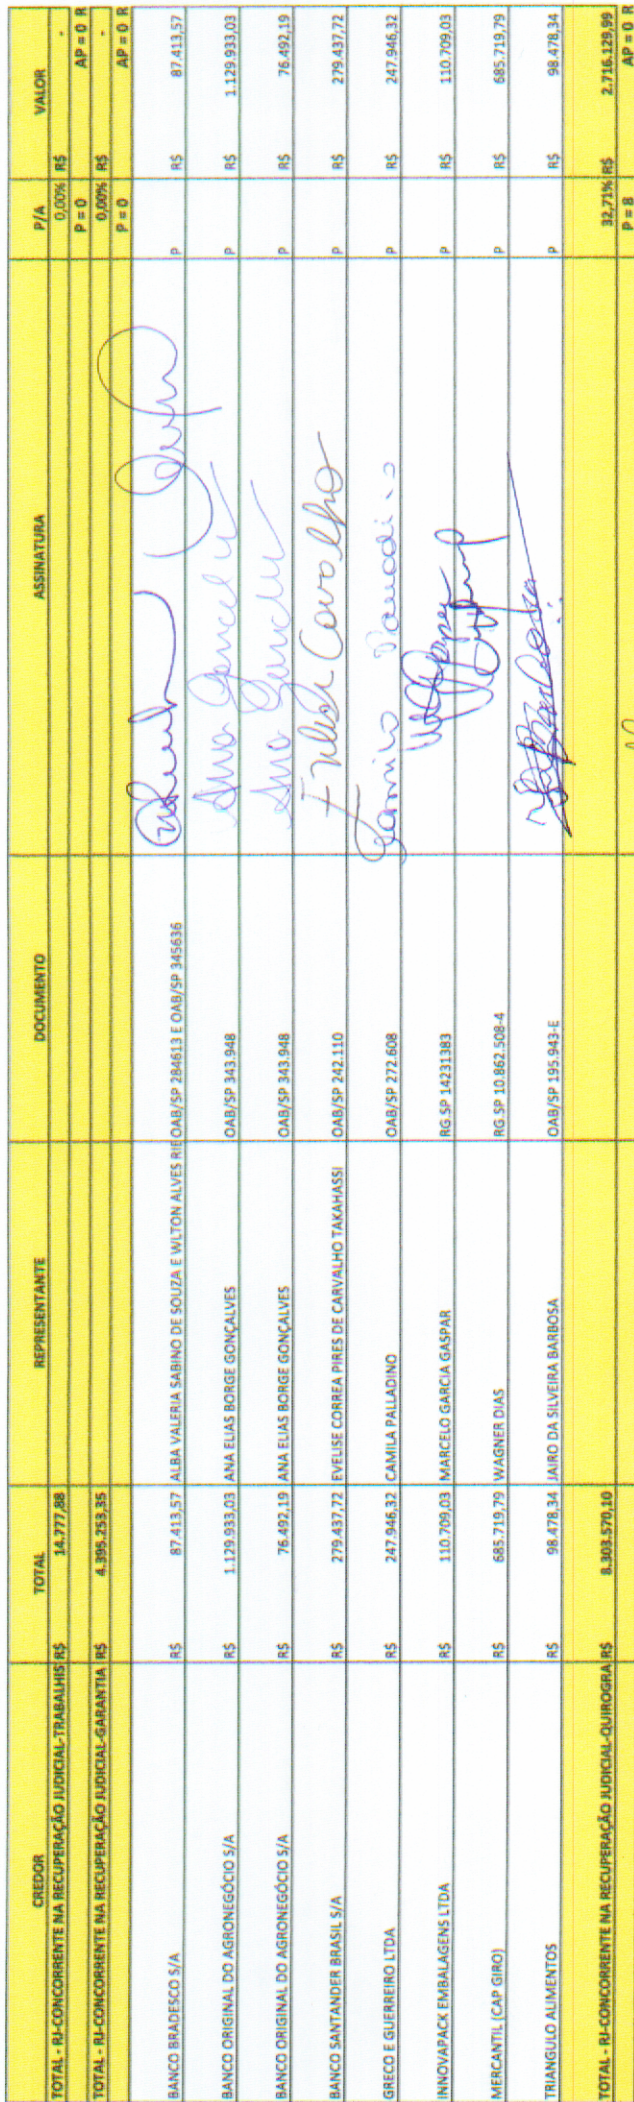 CREDOR TOTAL REPRESENTANTE DOCUMENTO ASSINATURA P/A VALOR
TOTAL - RJ-CONCORRENTE NA RECUPERAÇÃO JUDICIAL-TRABALHIS R$ 14.777,88 0,00% R$ -
P = 0 AP = 0 R
TOTAL - RJ-CONCORRENTE NA RECUPERAÇÃO JUDICIAL-GARANTIA R$ 4.395.253,35 0,00% R$ -
P = 0 AP = 0 R
BANCO BRADESCO S/A R$ 87.413,57 ALBA VALERIA SABINO DE SOUZA E WLTON ALVES RIB OAB/SP 284613 E OAB/SP 345636 P R$ 87.413,57
BANCO ORIGINAL DO AGRONEGÓCIO S/A R$ 1.129.933,03 ANA ELIAS BORGE GONÇALVES OAB/SP 343.948 P R$ 1.129.933,03
BANCO ORIGINAL DO AGRONEGÓCIO S/A R$ 76.492,19 ANA ELIAS BORGE GONÇALVES OAB/SP 343.948 P R$ 76.492,19
BANCO SANTANDER BRASIL S/A R$ 279.437,72 EVELISE CORREA PIRES DE CARVALHO TAKAHASSI OAB/SP 242.110 P R$ 279.437,72
GRECO E GUERREIRO LTDA R$ 247.946,32 CAMILA PALLADINO OAB/SP 272.608 P R$ 247.946,32
INNOVAPACK EMBALAGENS LTDA R$ 110.709,03 MARCELO GARCIA GASPAR RG.SP 14231383 P R$ 110.709,03
MERCANTIL (CAP GIRO) R$ 685.719,79 WAGNER DIAS RG.SP 10.862.508-4 P R$ 685.719,79
TRIANGULO ALIMENTOS R$ 98.478,34 JAIRO DA SILVEIRA BARBOSA OAB/SP 195.943-E P R$ 98.478,34
TOTAL - RJ-CONCORRENTE NA RECUPERAÇÃO JUDICIAL-QUIROGRA R$ 8.303.570,10 32,71% R$ 2.716.129,99
P = 8 AP = 0 R